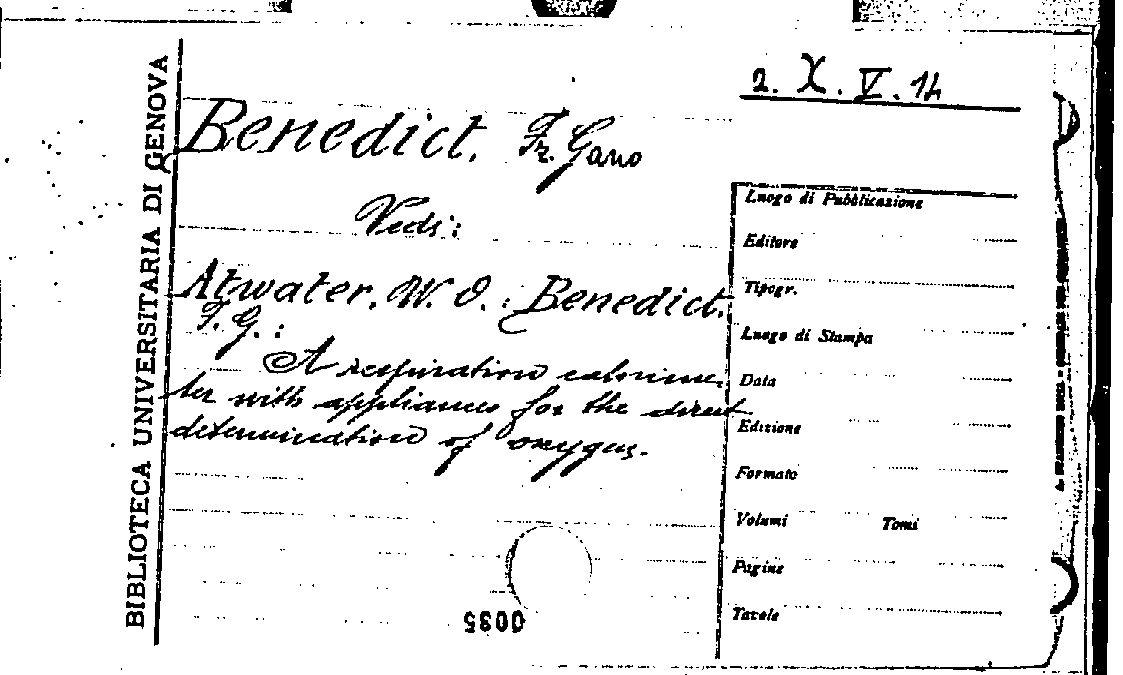 BIBLIOTECA UNIVERSITARIA DI GENOVA
2. X. V. 14
Benedict. Fr. Gano
Vedi:
Atwater. W. O. : Benedict.
F. G. :
A respiration calorime-
ter with appliances for the direct
determination of oxygen.
Luogo di Pubblicazione
Editore
Tipogr.
Luogo di Stampa
Data
Edizione
Formato
Volumi Tomi
Pagine
Tavole
0035